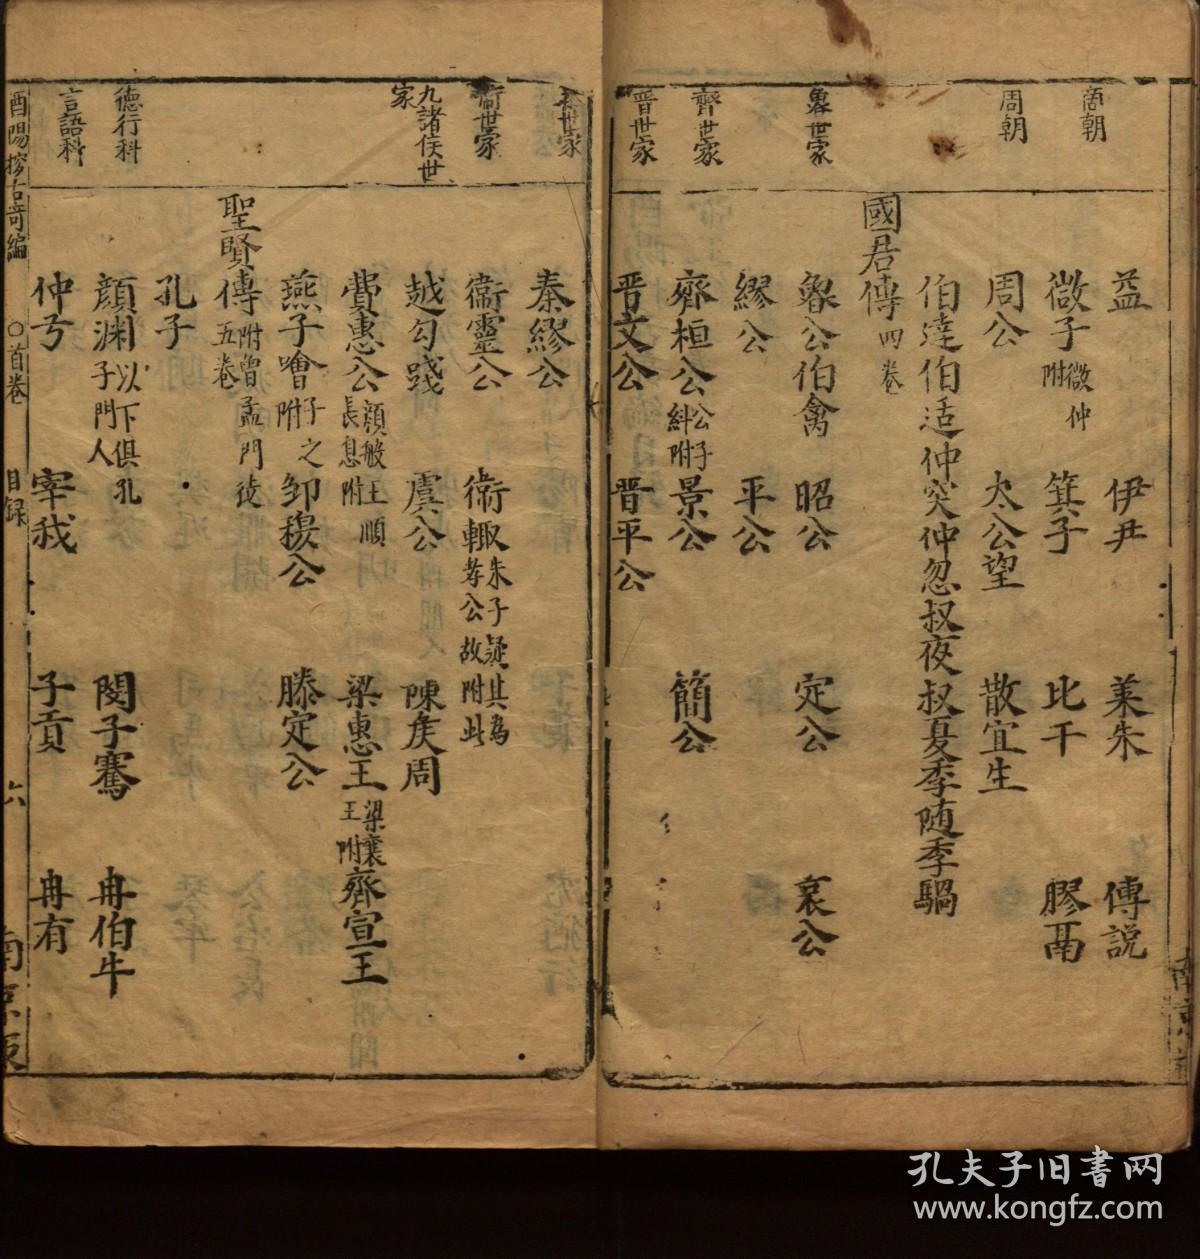 商朝
益 伊尹 萊朱 傳説
微子 微仲附 箕子 比干 膠鬲
周朝
周公 太公望 散宜生
伯達伯适仲突仲忽叔夜叔夏季随季騧
國君傳 四卷
魯世家
魯公伯禽 昭公 定公 哀公
繆公 平公
齊世家
齊桓公 公子糾附 景公 簡公
晋世家
晋文公 晋平公
秦世家
秦繆公
衛世家
衞靈公 衛輒 朱子疑其為孝公故附此
九諸侯世家
越勾踐 虞公 陳侯周
費惠公 顔般王順長息附 梁惠王 梁襄王附 齊宣王
燕子噲 子之附 邹穆公 滕定公
聖賢傳 附曾孟門徒五卷
孔子
德行科
顔渊 以下俱孔子門人 閔子騫 冉伯牛
言語科
仲弓 宰我 子貢 冉有
酉陽搜古奇編 〇首卷 目録 六
孔夫子旧書网
www.kongfz.com